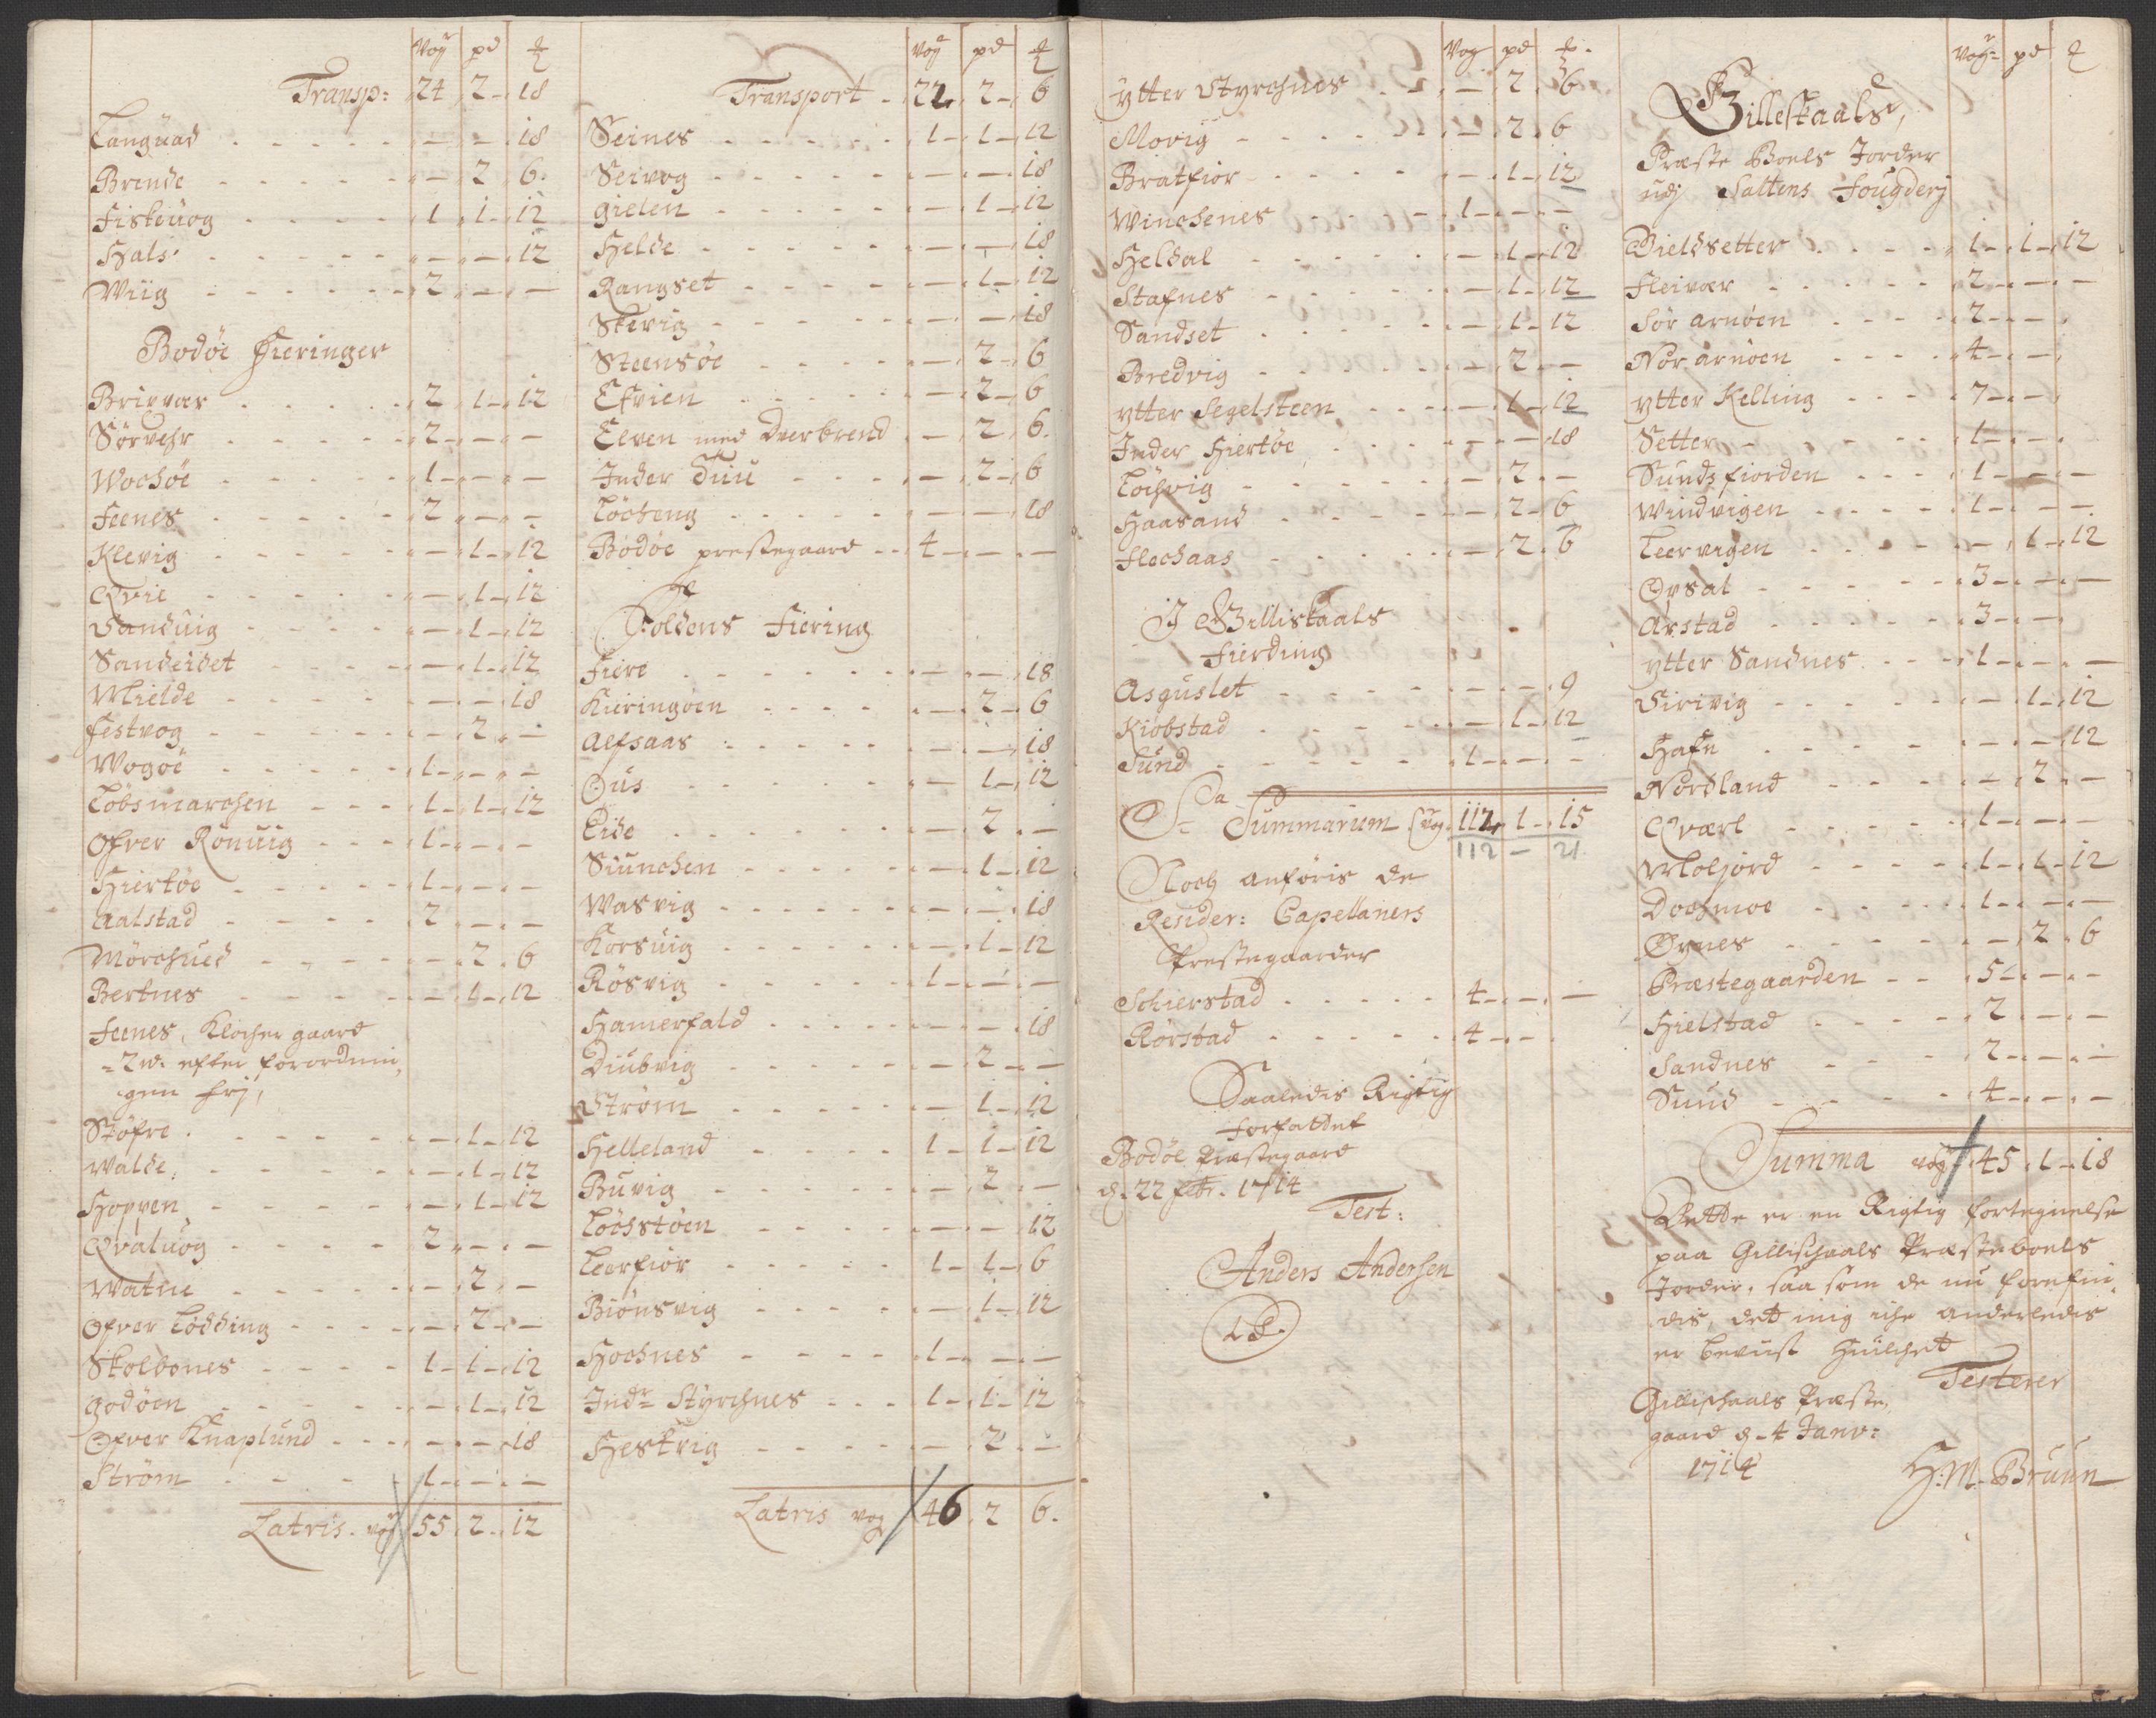 Voy pd ℔
Transp: 24 2 - 18
Languad - - 18
Brende - 2 6
Fiskeuog 1 1 12
Hals - - 12
Wiig 2 - -
Bodöe Fieringer
Brixvær 2 1 12
Sörvehr 2 - -
Wochöe 1 - -
Feenes 2 - -
Klevig - 1 12
Qvie - 1 12
Sanduig - 1 12
Sandeidet - 1 12
Mielde - - 18
Festvog - 2 -
Wogöe 1 - -
Löbsmarchen 1 1 12
Ofver Rönuig 1 - -
Hiertöe 1 - -
Aalstad 2 - -
Mörchued - 2 6
Bertnes - 1 12
Feenes, Klocher gaard
- 2 w: efter forordnin,
gen frj,
Stöfre - 1 12
Walde - 1 12
Hoppen - 1 12
Qvaluog 2 - -
Watne - 2 -
Ofver Lödding - 2 -
Skolbones 1 1 12
Godöen - 1 12
Ofver Knaplund - - 18
Ström 1 - -
Latris. voy 55 2 12
voy pd ℔
Transport 22 2 6
Seines 1 1 12
Seivog - - 18
Gielen - 1 12
Helde - - 18
Rangset - 1 12
Skevig - - 18
Steensöe - 2 6
Efvien - 2 6
Elven med Dverbrend - 2 6
Inder Duu - 2 6
Löcheng - - 18
Bodöe prestegaard 4 - -
Foldens Fiering
Fiere - - 18
Kieringöen - 2 6
Alfsaas - - 18
Ous - 1 12
Eide - 2 -
Siunchen - 1 12
Wasvig - - 18
Korsuig - 1 12
Rösvig 1 - -
Hamerfald - - 18
Diubvig - 2 -
Ström - 1 12
Helleland 1 1 12
Buvig - 2 -
Löchstöen - - 12
Leerfior 1 1 6
Biönsvig - 1 12
Hochnes 1 - -
Indr Styrchnes 1 1 12
Heskvig - 2 -
Latris vog 46 2 6
Vog pd ℔
Ytter Styrchnes - 2 6
Movig - 2 6
Bratfior - 1 12
Winchenes 1 - -
Heldal - 1 12
Stafnes - 1 12
Sandset - 1 12
Bredvig - 2 -
Ytter Segelsteen - 1 12
Inder Hiertöe - - 18
Löchvig - 2 -
Haasand - 2 6
Flechaas - 2 6
I Gilliskaals
Fierding
Asguslet - - 9
Kiöbstad - 1 12
Sund 1 - -
Sa Summarum 112 1 15
112 - 21
Noch anföris de
Resider: Capellaners
Prestegaarder
Schierstad 4 - -
Rörstad 4 - -
Saaledis Rigtig
forfattet
Bodöe Præstegaard
d. 22 febr. 1714
Test:
Anders Andersen
LS.
voy pd ℔
Gilleskaals,
Præste Boels Jorder
udj Saltens Fougderj
Gieldsetter 1 1 12
Fleivær 2 - -
Sör arnöen 2 - -
Nör arnöen 4 - -
Ytter Kelling 7 - -
Setter 1 - -
Sundsfiorden 1 - -
Windvigen 1 - -
Leervigen - 1 12
Ovsal 3 - -
Arstad 3 - -
Ytter Sandnes 1 - -
Sirivig - 1 12
Hafn - - 12
Nordland - 2 -
Qværl 1 - -
Moljord 1 1 12
Dochmoe 1 - -
Øvnes - 2 6
Præstegaarden 5 - -
Hielstad 2 - -
Sandnes 2 - -
Sund 4 - -
Summa vog 45 1 18
Dette er en Rigtig fortegnelse
paa Gillischaals Præsteboels
Jorder, saa som de nu forefin,
dis, det mig iche anderledis
er bevust huilchet
Testerer
Gillischaals Præste,
gaard d. 4 Janv:
1714
H: M. Bruun